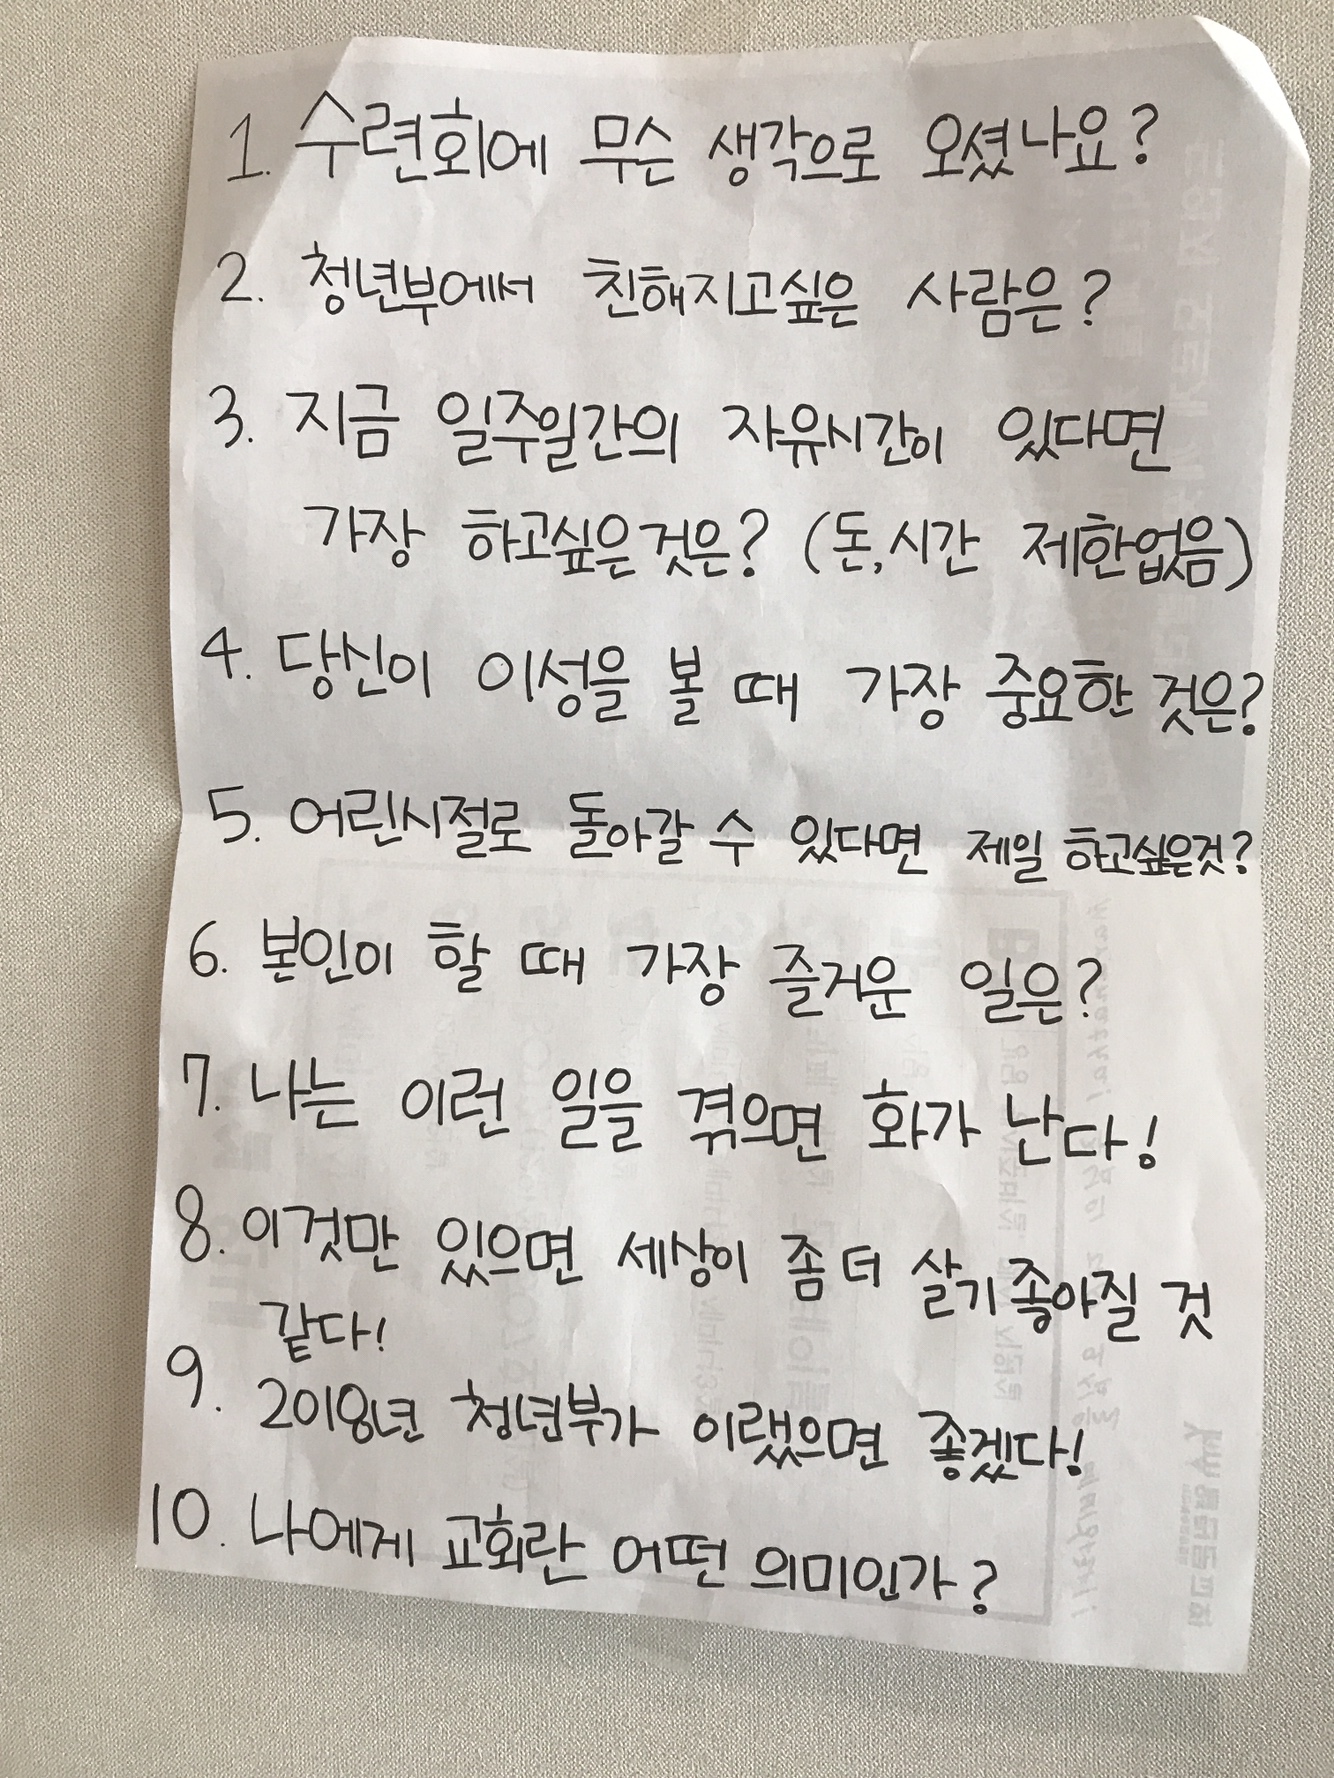 1. 수련회에 무슨 생각으로 오셨나요?
2. 청년부에서 친해지고싶은 사람은?
3. 지금 일주일간의 자유시간이 있다면
가장 하고싶은것은? (돈,시간 제한없음)
4. 당신이 이성을 볼 때 가장 중요한 것은?
5. 어린시절로 돌아갈 수 있다면 제일 하고싶은것?
6. 본인이 할 때 가장 즐거운 일은?
7. 나는 이런 일을 겪으면 화가 난다!
8. 이것만 있으면 세상이 좀 더 살기좋아질 것
같다!
9. 2018년 청년부가 이랬으면 좋겠다!
10. 나에게 교회란 어떤 의미인가?